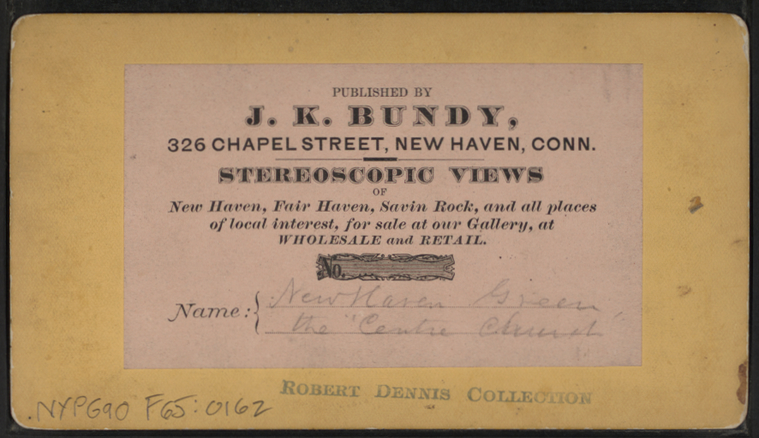 PUBLISHED BY
J. K. BUNDY,
326 CHAPEL STREET, NEW HAVEN, CONN.
STEREOSCOPIC VIEWS
OF
New Haven, Fair Haven, Savin Rock, and all places
of local interest, for sale at our Gallery, at
WHOLESALE and RETAIL.
No.
Name: New Haven Green
the "Centre Church"
ROBERT DENNIS COLLECTION
NYPG90 F65:0162